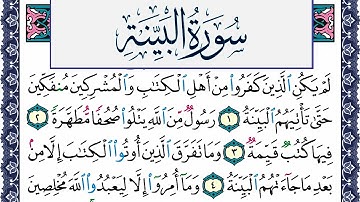 سُورَةُ الْبَيِّنَةِ
لَمْ يَكُنِ ٱلَّذِينَ كَفَرُوا۟ مِنْ أَهْلِ ٱلْكِتَٰبِ وَٱلْمُشْرِكِينَ مُنفَكِّينَ
حَتَّىٰ تَأْتِيَهُمُ ٱلْبَيِّنَةُ ١ رَسُولٌ مِّنَ ٱللَّهِ يَتْلُوا۟ صُحُفًا مُّطَهَّرَةً ٢
فِيهَا كُتُبٌ قَيِّمَةٌ ٣ وَمَا تَفَرَّقَ ٱلَّذِينَ أُوتُوا۟ ٱلْكِتَٰبَ إِلَّا مِنۢ
بَعْدِ مَا جَآءَتْهُمُ ٱلْبَيِّنَةُ ٤ وَمَآ أُمِرُوٓا۟ إِلَّا لِيَعْبُدُوا۟ ٱللَّهَ مُخْلِصِينَ